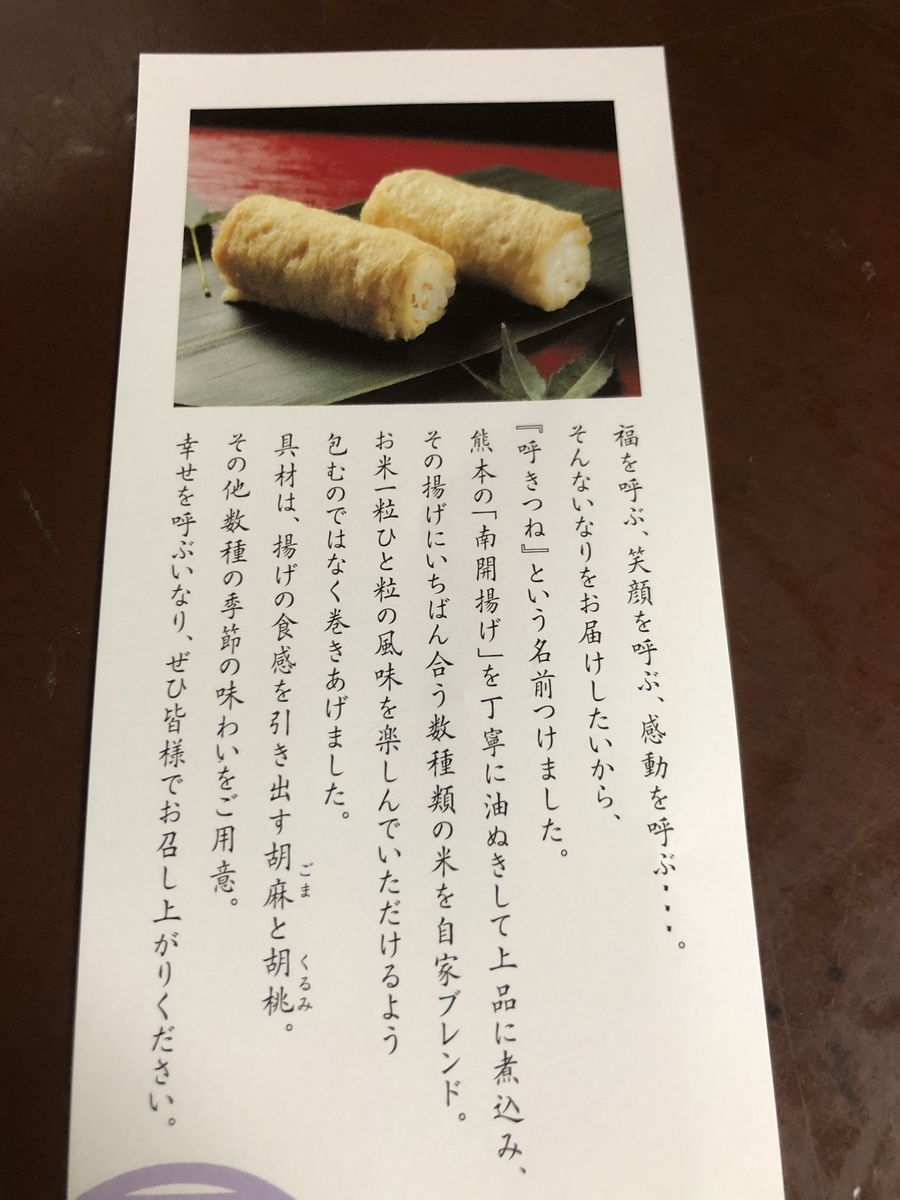 福を呼ぶ、笑顔を呼ぶ、感動を呼ぶ・・・。
そんないなりをお届けしたいから、
『呼きつね』という名前つけました。
熊本の「南開揚げ」を丁寧に油ぬきして上品に煮込み、
その揚げにいちばん合う数種類の米を自家ブレンド。
お米一粒ひと粒の風味を楽しんでいただけるよう
包むのではなく巻きあげました。
具材は、揚げの食感を引き出す胡麻と胡桃。
ごま くるみ
その他数種の季節の味わいをご用意。
幸せを呼ぶいなり、ぜひ皆様でお召し上がりください。